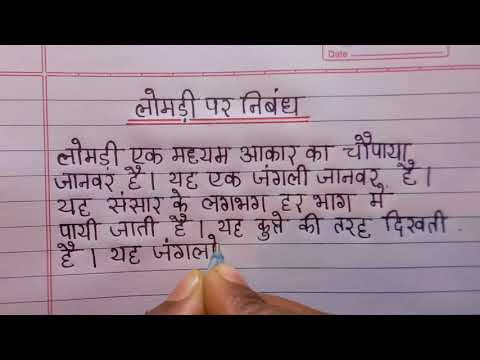 Date
लोमड़ी पर निबंध
लोमड़ी एक मध्यम आकार का चौपाया
जानवर है। यह एक जंगली जानवर है।
यह संसार के लगभग हर भाग में
पायी जाती है। यह कुत्ते की तरह दिखती
है। यह जंगलो